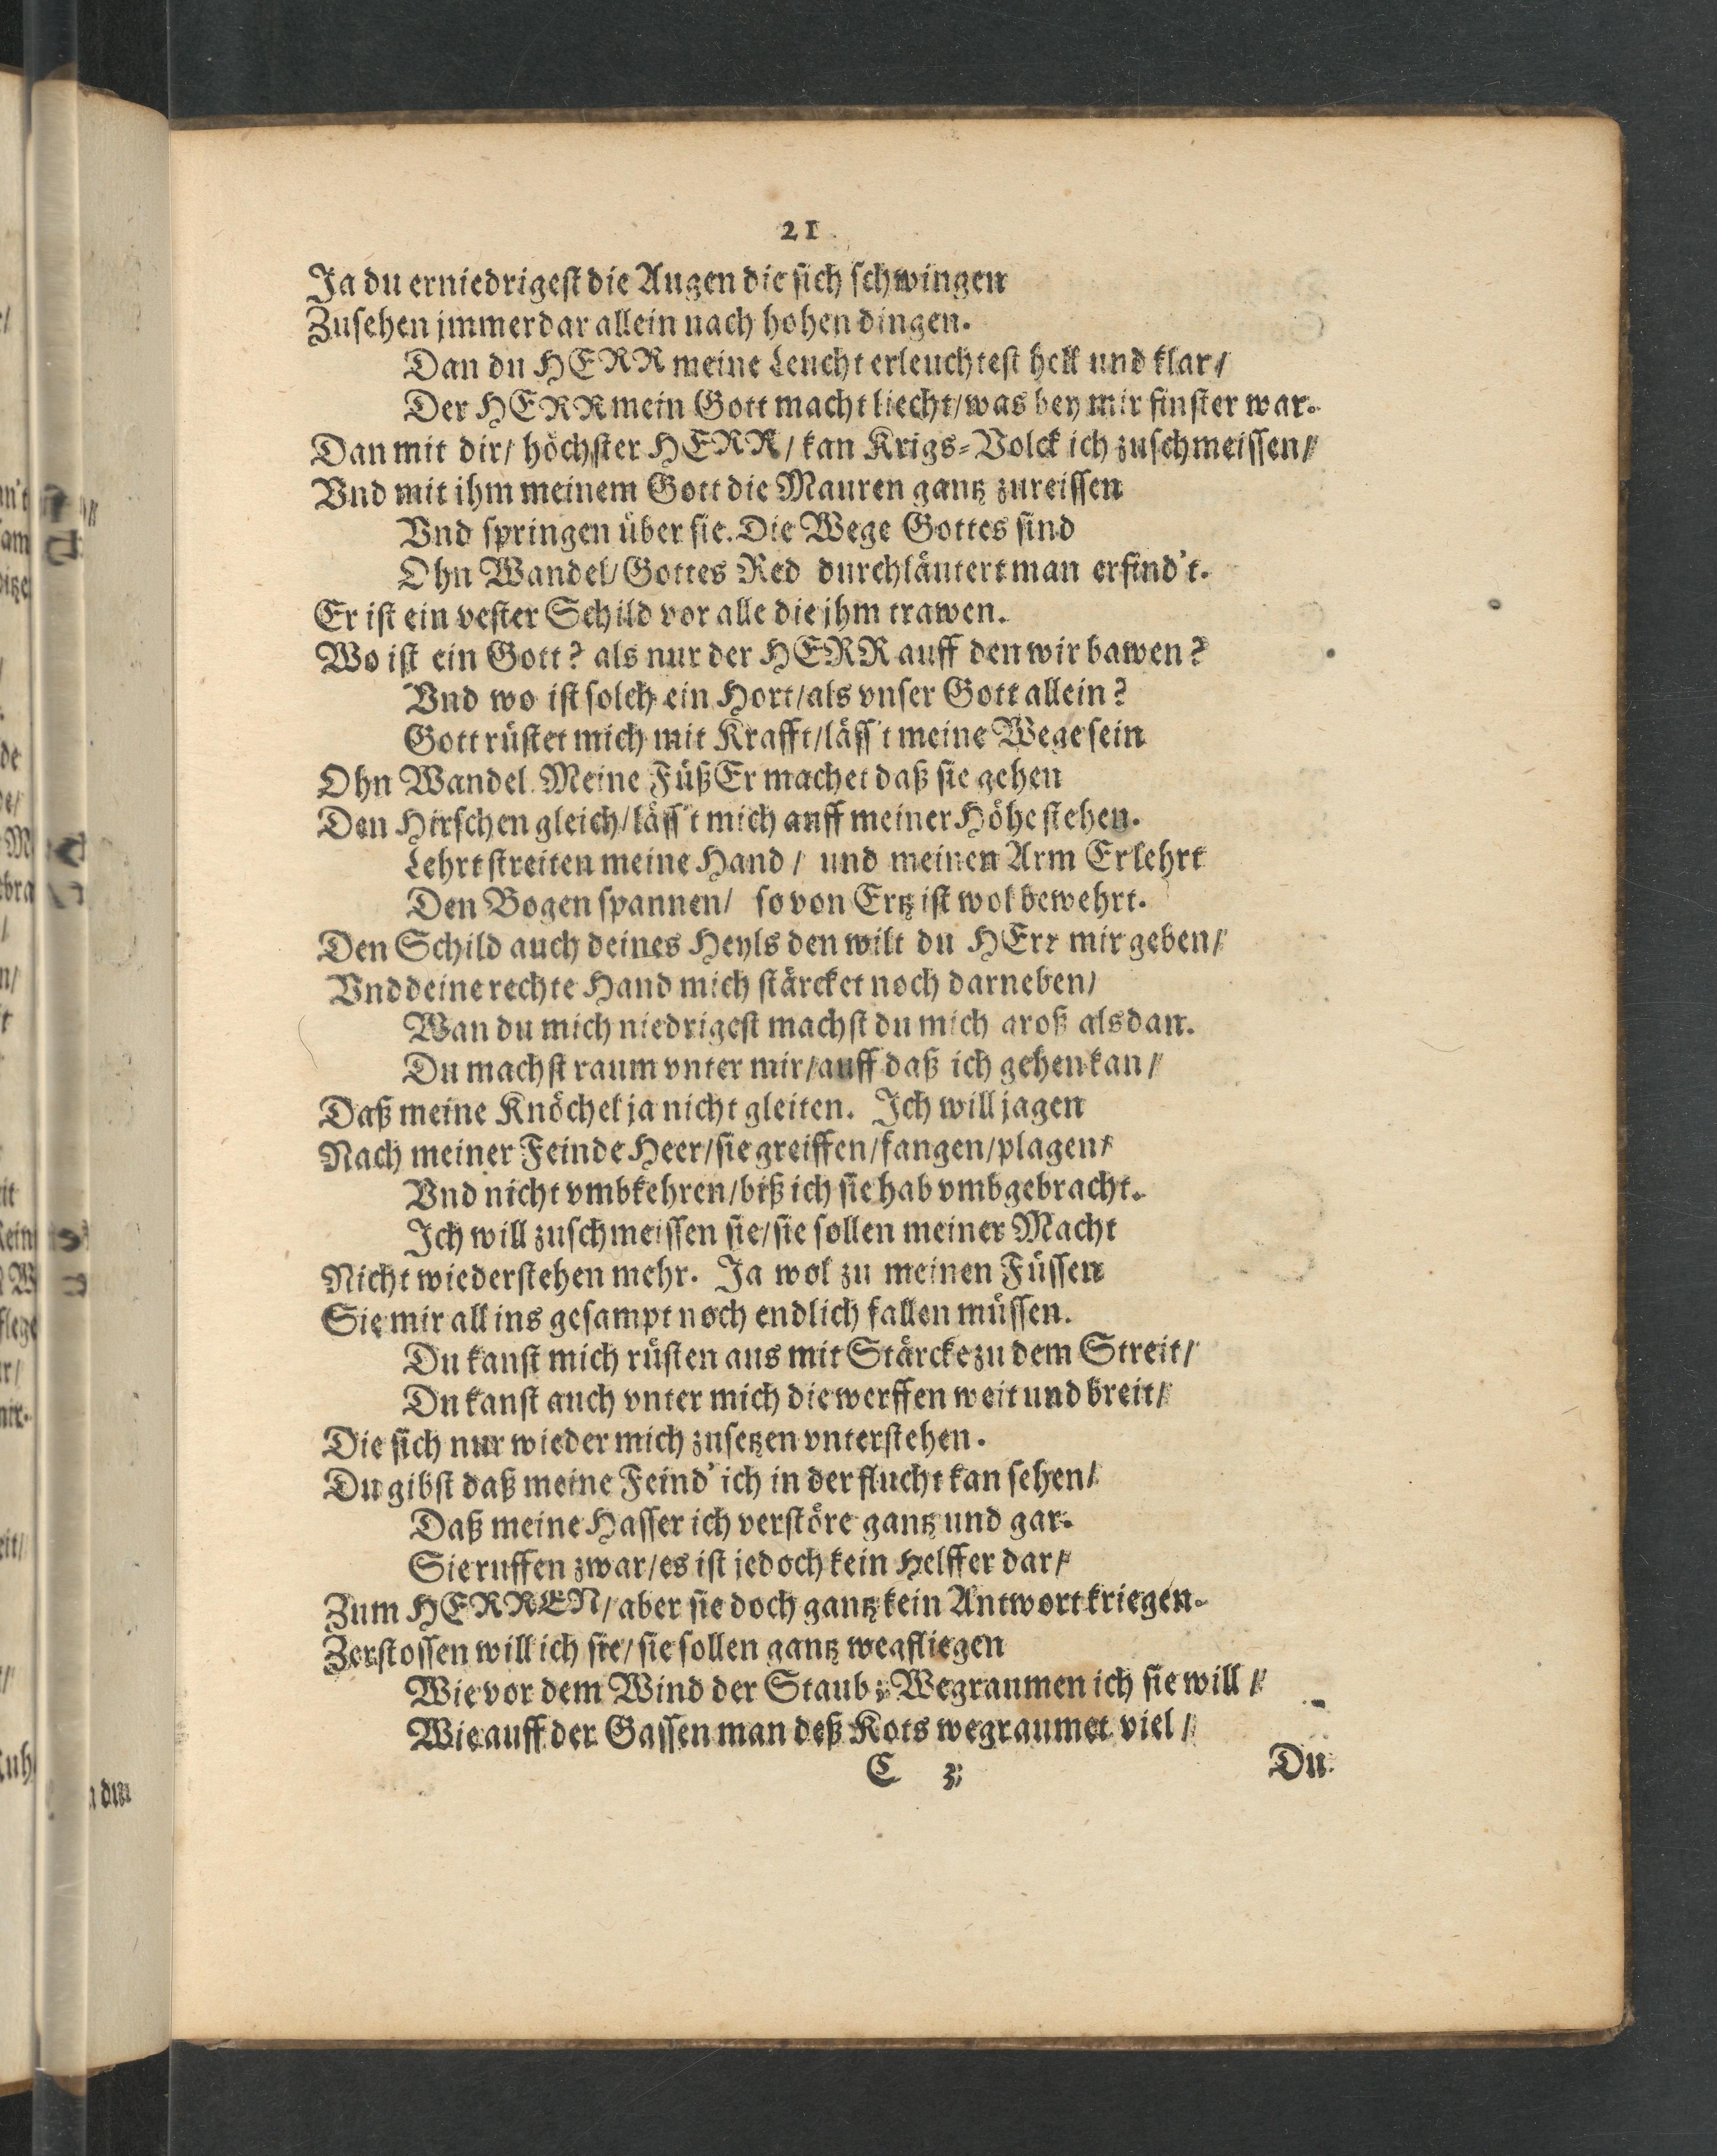 21
Ja du erniedrigest die Augen die sich schwingen
Zusehen jmmerdar allein nach hohen dingen.
Dan du HERR meine Leucht erleuchtest hell und klar/
Der HERR mein Gott macht liecht/was bey mir finster war.
Dan mit dir/ höchster HERR/ kan Krigs-Volck ich zuschmeissen/
Vnd mit ihm meinem Gott die Mauren gantz zureissen
Vnd springen über sie. Die Wege Gottes sind
Ohn Wandel/Gottes Red durchläutert man erfind't.
Er ist ein vester Schild vor alle die jhm trawen.
Wo ist ein Gott? als nur der HERR auff den wir bawen?
Vnd wo ist solch ein Hort/als vnser Gott allein?
Gott rüstet mich mit Krafft/läss't meine Wege sein
Ohn Wandel. Meine Füß Er machet daß sie gehen
Den Hirschen gleich/läss't mich auff meiner Höhe stehen.
Lehrt streiten meine Hand/ und meinen Arm Er lehrt
Den Bogen spannen/ so von Ertz ist wol bewehrt.
Den Schild auch deines Heyls den wilt du HErr mir geben/
Vnd deine rechte Hand mich stärcket noch darneben/
Wan du mich niedrigest machst du mich groß alsdan.
Du machst raum vnter mir/auff daß ich gehen kan/
Daß meine Knöchel ja nicht gleiten. Ich will jagen
Nach meiner Feinde Heer/sie greiffen/fangen/plagen/
Vnd nicht vmbkehren/biß ich sie hab vmbgebracht.
Ich will zuschmeissen sie/sie sollen meiner Macht
Nicht wiederstehen mehr. Ja wol zu meinen Füssen
Sie mir all ins gesampt noch endlich fallen müssen.
Du kanst mich rüsten aus mit Stärcke zu dem Streit/
Du kanst auch vnter mich die werffen weit und breit/
Die sich nur wieder mich zusetzen vnterstehen.
Du gibst daß meine Feind' ich in der flucht kan sehen/
Daß meine Hasser ich verstöre gantz und gar.
Sie ruffen zwar/es ist jedoch kein Helffer dar/
Zum HERREN/aber sie doch gantz kein Antwort kriegen.
Zerstossen will ich sie/sie sollen gantz wegfliegen
Wie vor dem Wind der Staub; Wegraumen ich sie will/
Wie auff der Gassen man deß Kots wegraumet viel/
C 3
Du